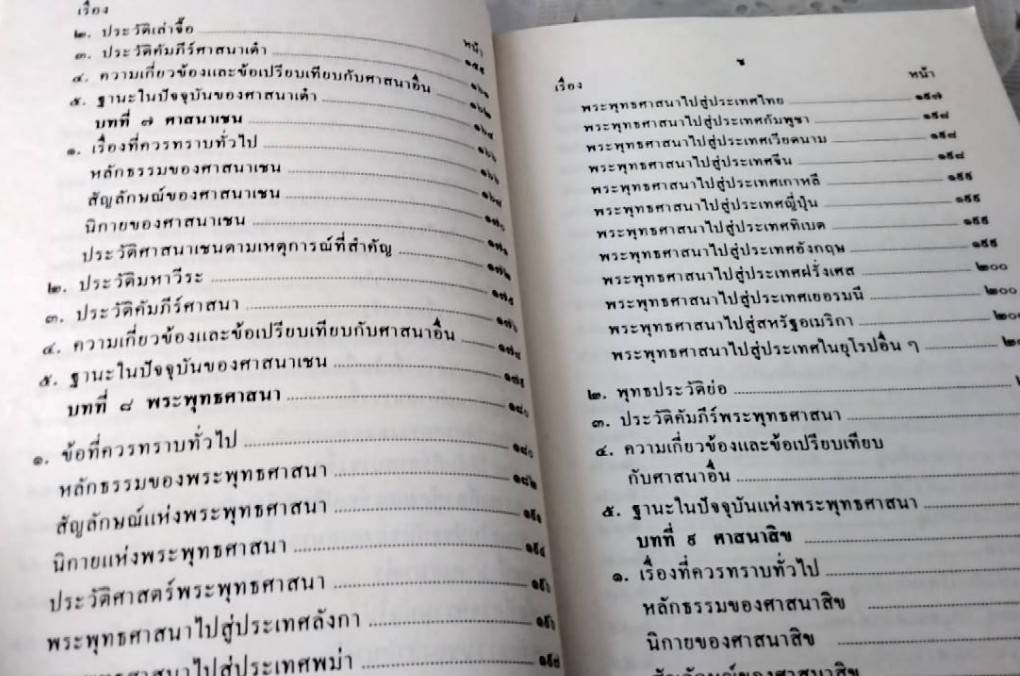 เรื่อง
หน้า
๒. ประวัติเล่าจื๊อ
๓. ประวัติคัมภีร์ศาสนาเต๋า
๔. ความเกี่ยวข้องและข้อเปรียบเทียบกับศาสนาอื่น
๕. ฐานะในปัจจุบันของศาสนาเต๋า
บทที่ ๗ ศาสนาเชน
๑. เรื่องที่ควรทราบทั่วไป
หลักธรรมของศาสนาเชน
สัญลักษณ์ของศาสนาเชน
นิกายของศาสนาเชน
ประวัติศาสนาเชนตามเหตุการณ์ที่สำคัญ
๒. ประวัติมหาวีระ
๓. ประวัติคัมภีร์ศาสนา
๔. ความเกี่ยวข้องและข้อเปรียบเทียบกับศาสนาอื่น
๕. ฐานะในปัจจุบันของศาสนาเชน
บทที่ ๘ พระพุทธศาสนา ๑๘๐
๑. ข้อที่ควรทราบทั่วไป ๑๘๐
หลักธรรมของพระพุทธศาสนา ๑๘๒
สัญลักษณ์แห่งพระพุทธศาสนา
นิกายแห่งพระพุทธศาสนา ๑๙๔
ประวัติศาสตร์พระพุทธศาสนา ๑๙๖
พระพุทธศาสนาไปสู่ประเทศลังกา ๑๙๖
พระพุทธศาสนาไปสู่ประเทศพม่า ๑๙๗
ช
เรื่อง หน้า
พระพุทธศาสนาไปสู่ประเทศไทย ๑๙๗
พระพุทธศาสนาไปสู่ประเทศกัมพูชา ๑๙๘
พระพุทธศาสนาไปสู่ประเทศเวียดนาม ๑๙๘
พระพุทธศาสนาไปสู่ประเทศจีน ๑๙๘
พระพุทธศาสนาไปสู่ประเทศเกาหลี ๑๙๙
พระพุทธศาสนาไปสู่ประเทศญี่ปุ่น ๑๙๙
พระพุทธศาสนาไปสู่ประเทศทิเบต ๑๙๙
พระพุทธศาสนาไปสู่ประเทศอังกฤษ ๑๙๙
พระพุทธศาสนาไปสู่ประเทศฝรั่งเศส ๒๐๐
พระพุทธศาสนาไปสู่ประเทศเยอรมนี ๒๐๐
พระพุทธศาสนาไปสู่สหรัฐอเมริกา
พระพุทธศาสนาไปสู่ประเทศในยุโรปอื่น ๆ
๒. พุทธประวัติย่อ
๓. ประวัติคัมภีร์พระพุทธศาสนา
๔. ความเกี่ยวข้องและข้อเปรียบเทียบ
กับศาสนาอื่น
๕. ฐานะในปัจจุบันแห่งพระพุทธศาสนา
บทที่ ๙ ศาสนาสิข
๑. เรื่องที่ควรทราบทั่วไป
หลักธรรมของศาสนาสิข
นิกายของศาสนาสิข
สัญลักษณ์ของศาสนาสิข